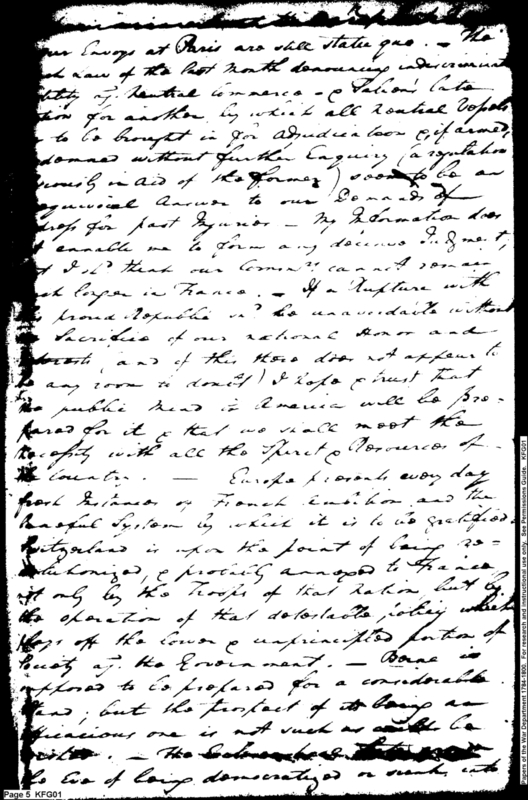 our Envoys at Paris are still statu quo. — The
Law of the last Month denouncing indiscriminate
agt. Neutral Commerce — & Talien's late
for another, by which all Neutral Vessels
to be brought in for adjudication & if armed,
without further Enquiry (a regulation
in aid of the former) seem to be an
Answer to our Demands of
for past Injuries — My Information does
enable me to form any decisive Judgment,
I shd. think our Commrs. cannot remain
longer in France. — If a Rupture with
proud Republic shd. be unavoidable without
Sacrifice of our national Honor and
(and of this there does not appear to
be any room to doubt) I hope & trust that
the public Mind in America will be pre-
pared for it & that we shall meet the
necessity with all the Spirit & Resources of
the Country. — Europe presents every day
fresh Instances of French Ambition and the
baneful System by which it is to be gratified
Switzerland is upon the point of being re-
volutionized, & probably annexed to France
not only by the Troops of that Nation but by
the operation of that detestable policy which
plays off the lower & unprincipled portion of
Society agt. the Government. — Berne is
supposed to be prepared for a considerable
Stand; but the prospect of its being an
efficacious one is not such as be
wished. — The
the Eve of being democratized or sunk into
Page 5 KFG01
Papers of the War Department 1784-1800. For research and instructional use only. See Permissions Guide. KFG01